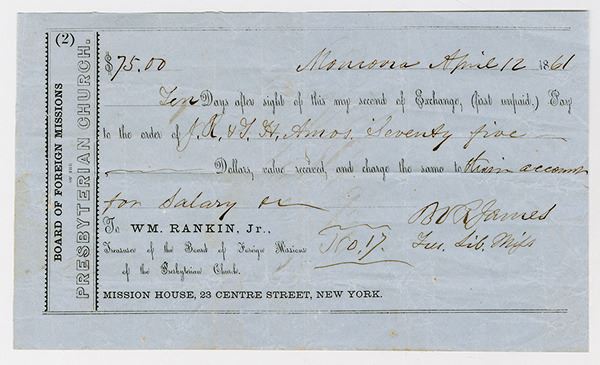 (2)
BOARD OF FOREIGN MISSIONS
OF THE
PRESBYTERIAN CHURCH.
$75.00 Monrovia April 12 1861
Ten Days after sight of this my second of Exchange, (first unpaid.) Pay
to the order of J. R. & T. H. Amos. Seventy five
Dollars, value received, and charge the same to their account
for Salary
To WM. RANKIN, Jr., B V R James
Treasurer of the Board of Foreign Missions No. 17. Lib. Miss
of the Presbyterian Church.
MISSION HOUSE, 23 CENTRE STREET, NEW YORK.